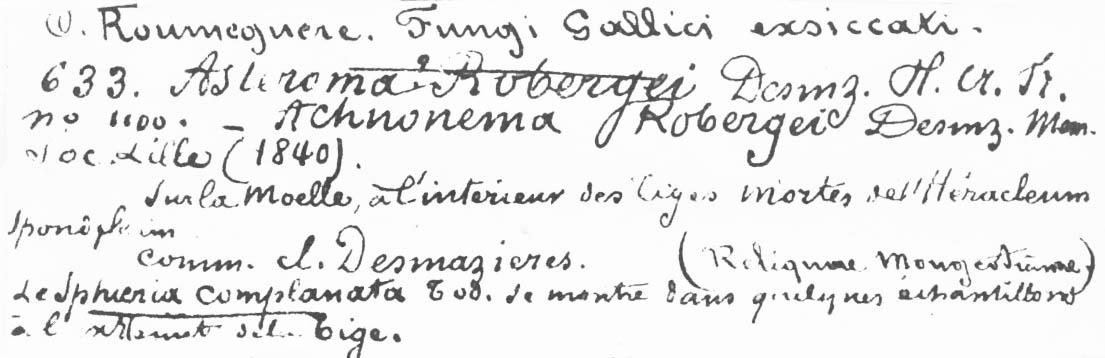 C. Roumeguere. Fungi Gallici exsiccati.
633. Asteroma Robergei Desmz. H. Cr. Fr.
no 1100. – Actinonema Robergei Desmz. Mem.
Soc Lille (1840).
Sur la Moelle, à l'intérieur des tiges mortes de l'Héracleum
Spondylium
comm. cl. Desmazieres. (Reliquiae Mougeotianae)
Le Sphæria complanata Tod. se montre dans quelques échantillons
à l' de la tige.